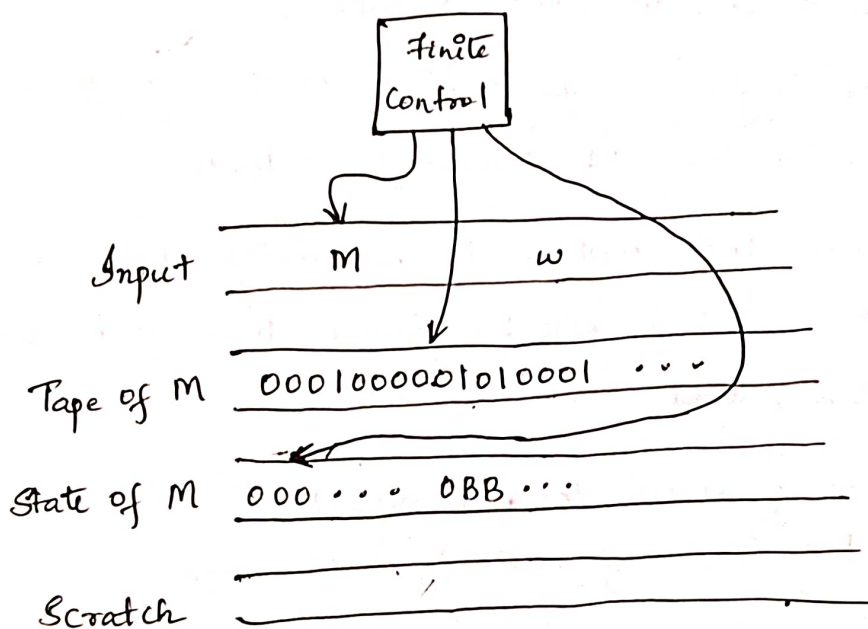 Finite
Control
Input M w
Tape of M 0001000001010001 ...
State of M 000 ... 0BB ...
Scratch